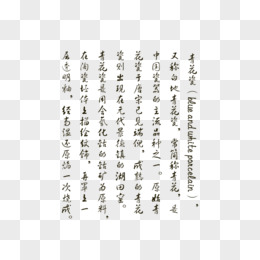 青花瓷（blue and white porcelain），
又称白地青花瓷，常简称青花，是
中国瓷器的主流品种之一。原始青
花瓷于唐宋已见端倪，成熟的青花
瓷则出现在元代景德镇的湖田窑。
青花瓷是用含氧化钴的钴矿为原料，
在陶瓷坯体上描绘纹饰，再罩上一
层透明釉，经高温还原焰一次烧成。